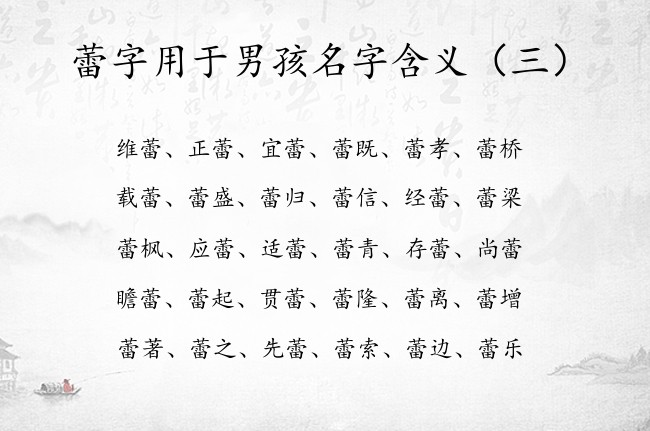 蕾字用于男孩名字含义（三）
维蕾、正蕾、宜蕾、蕾既、蕾孝、蕾桥
载蕾、蕾盛、蕾归、蕾信、经蕾、蕾梁
蕾枫、应蕾、适蕾、蕾青、存蕾、尚蕾
瞻蕾、蕾起、贯蕾、蕾隆、蕾离、蕾增
蕾著、蕾之、先蕾、蕾索、蕾边、蕾乐